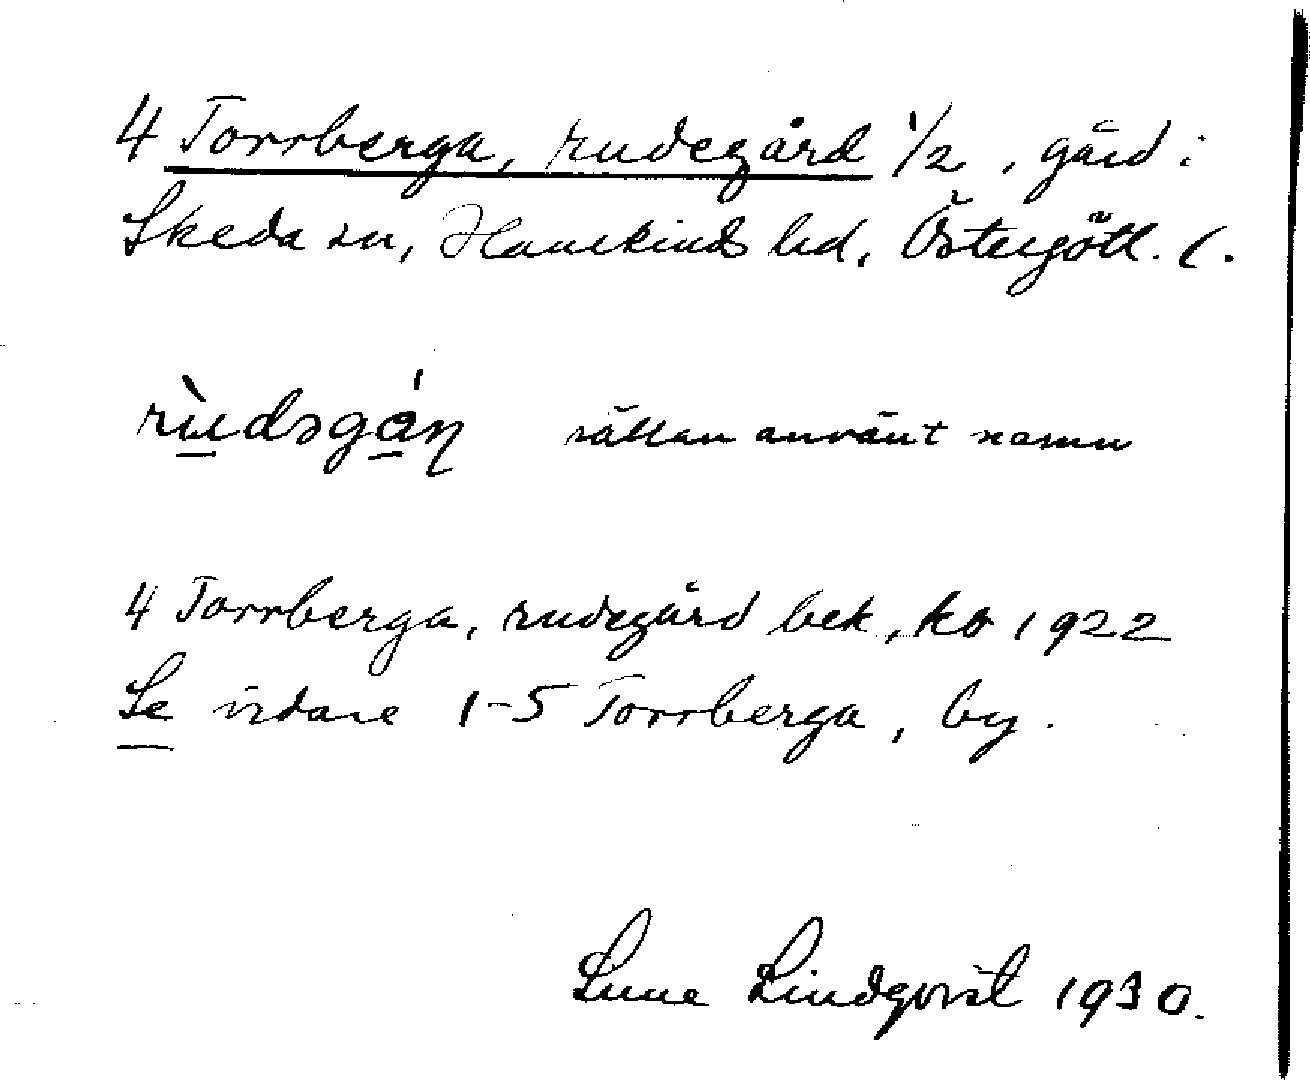 4 Torrberga, rudegård 1/2, gård i
Skeda sn, Hanekinds hd, Östergötl. l.
sällan använt namn
4 Torrberga, rudegård bek, ko 1922
Se vidare 1-5 Torrberga, by.
Sune Lindqvist 1930.